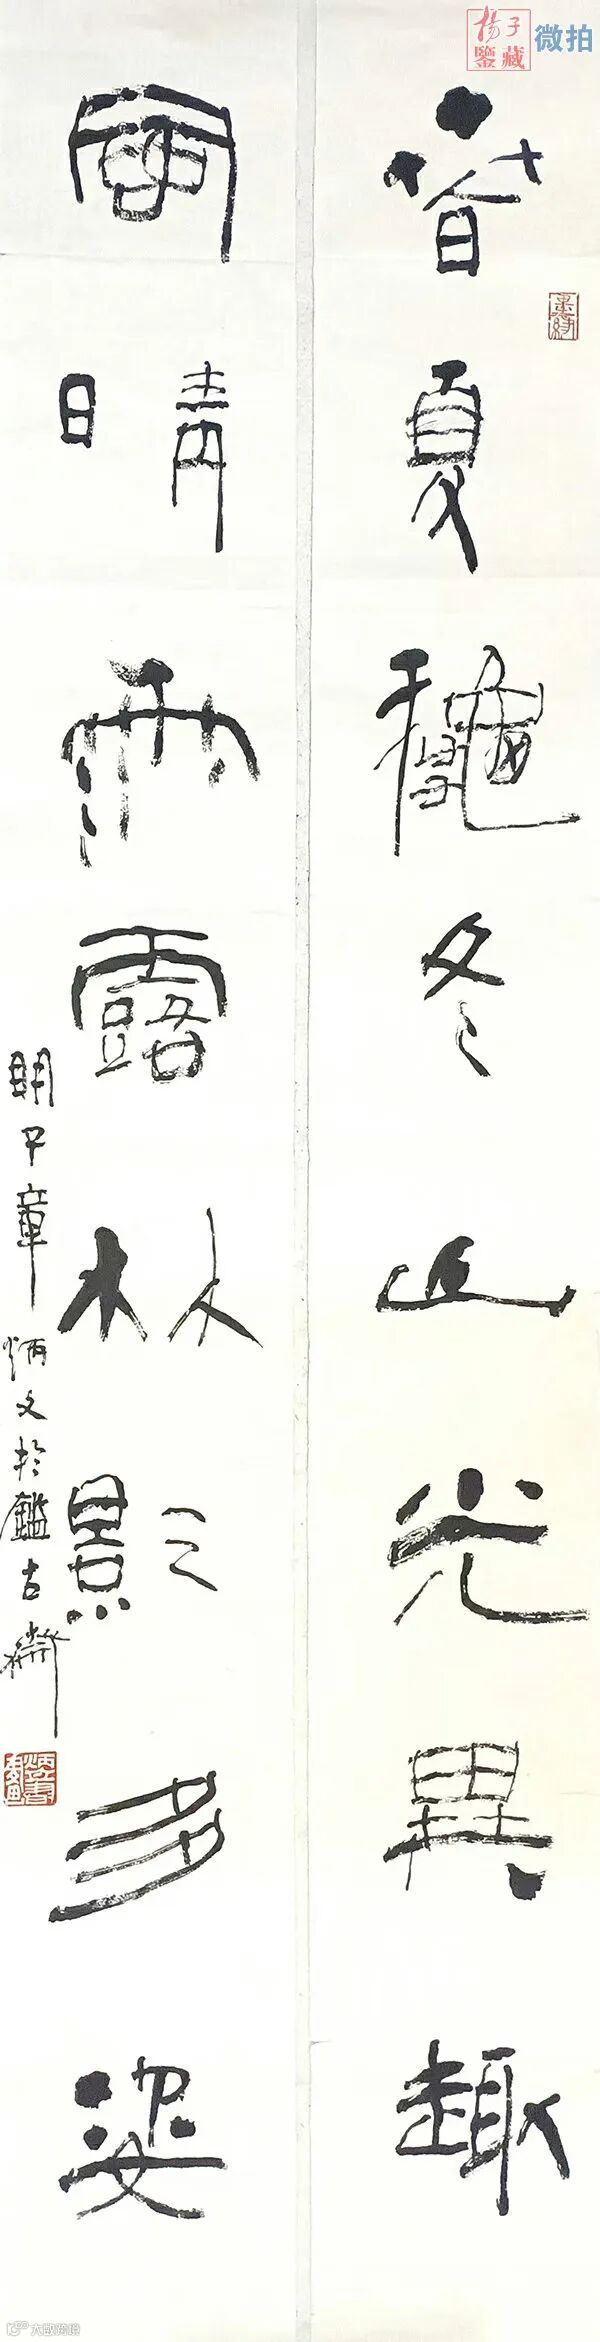 楊子
鑒藏 微拍
春夏龝冬山光異趣
風晴雨露林影多姿
明子章炳文於鑑古齋